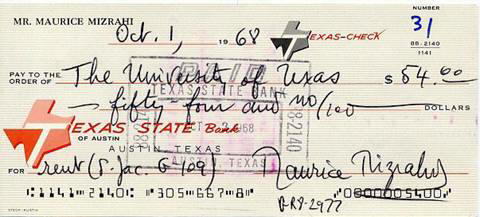 MR. MAURICE MIZRAHI
NUMBER
31
Oct. 1, 1968
TEXAS-CHECK
88-2140
1141
PAY TO THE
ORDER OF The University of Texas $ 54.00
PAID
TEXAS STATE BANK
fifty-four and no/100 DOLLARS
88-2140
OCT 2 1968
TEXAS STATE Bank
OF AUSTIN
AUSTIN, TEXAS
AUSTIN, TEXAS
FOR rent (S. Jac. G-109) Maurice Mizrahi
1141 2140 305 667 8 0000005400
TECH-AUSTIN